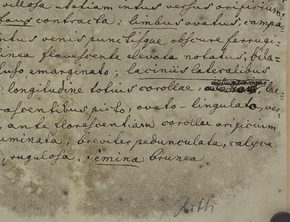 villosa intus versus orificium,
contracta: limbus ovatus, campa
ntus venis punctisque obscure ferrugi
linea flavescente elevata notatus; bila
emarginato; laciniis lateralibus
longitudine totius corollae
rascentibus picto, ovato-lingulato, ver
, ante florescentiam corollae orificium
uminata, breviter pedunculata, calyce
, rugulosa, semina brunea